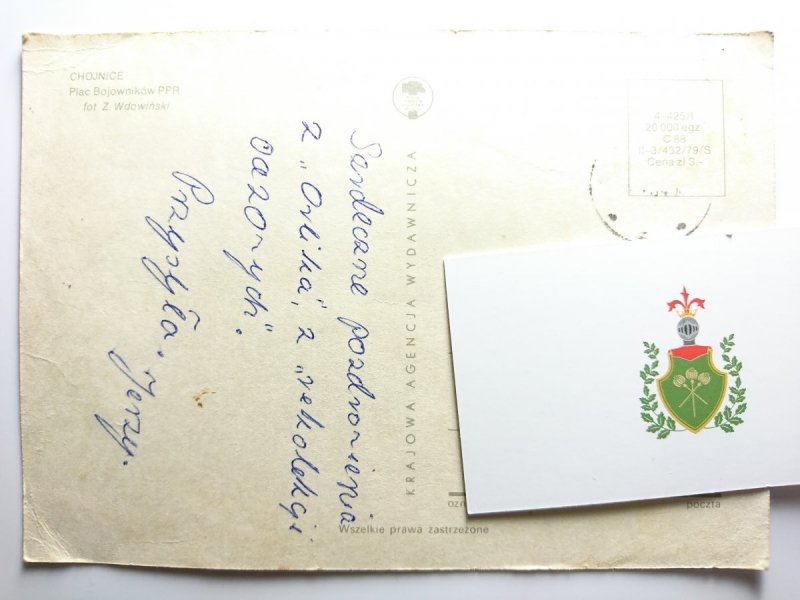 CHOJNICE
Plac Bojowników PPR
fot Z. Wdowiński
4-425/1
20 000 egz.
C 88
II-3/432/79/S
Cena zł 3,-
KRAJOWA AGENCJA WYDAWNICZA
Serdeczne pozdrowienia
z „Orlika", z „rekolekcji
oazowych".
Przesyła. Jerzy.
Wszelkie prawa zastrzeżone
poczta